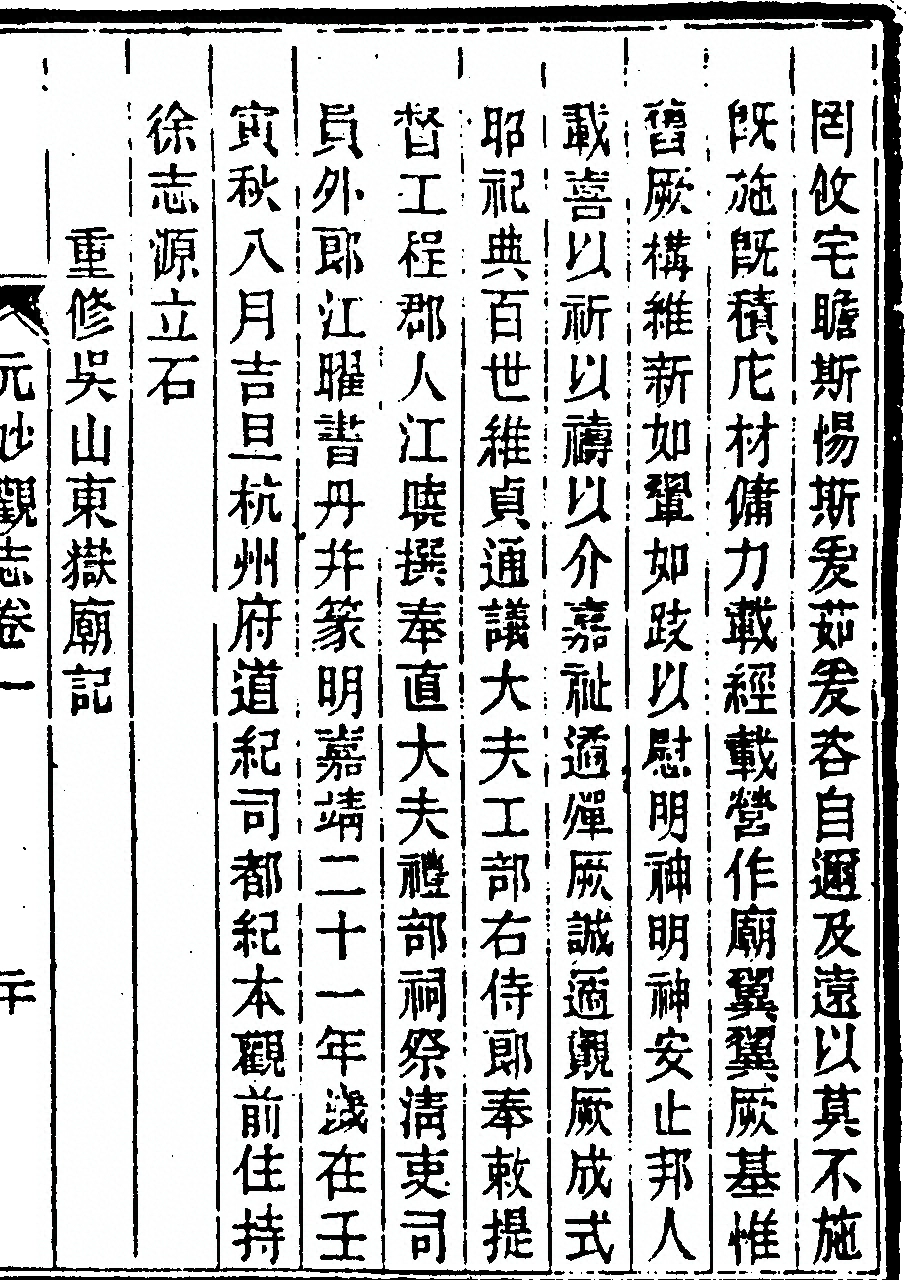 罔攸宅瞻斯惕斯爰茹爰咨自邇及遠以莫不施
旣施旣積庀材傭力載經載營作廟翼翼厥基惟
舊厥構維新如翬如跂以慰明神明神安止邦人
載喜以祈以禱以介嘉祉遹殫厥誠遹覲厥成式
昭祀典百世維貞通議大夫工部右侍郎奉敕提
督工程郡人江曉撰奉直大夫禮部祠祭淸吏司
員外郎江曜書丹并篆明嘉靖二十一年歲在壬
寅秋八月吉旦杭州府道紀司都紀本觀前住持
徐志源立石
重修吳山東嶽廟記
元妙觀志卷一